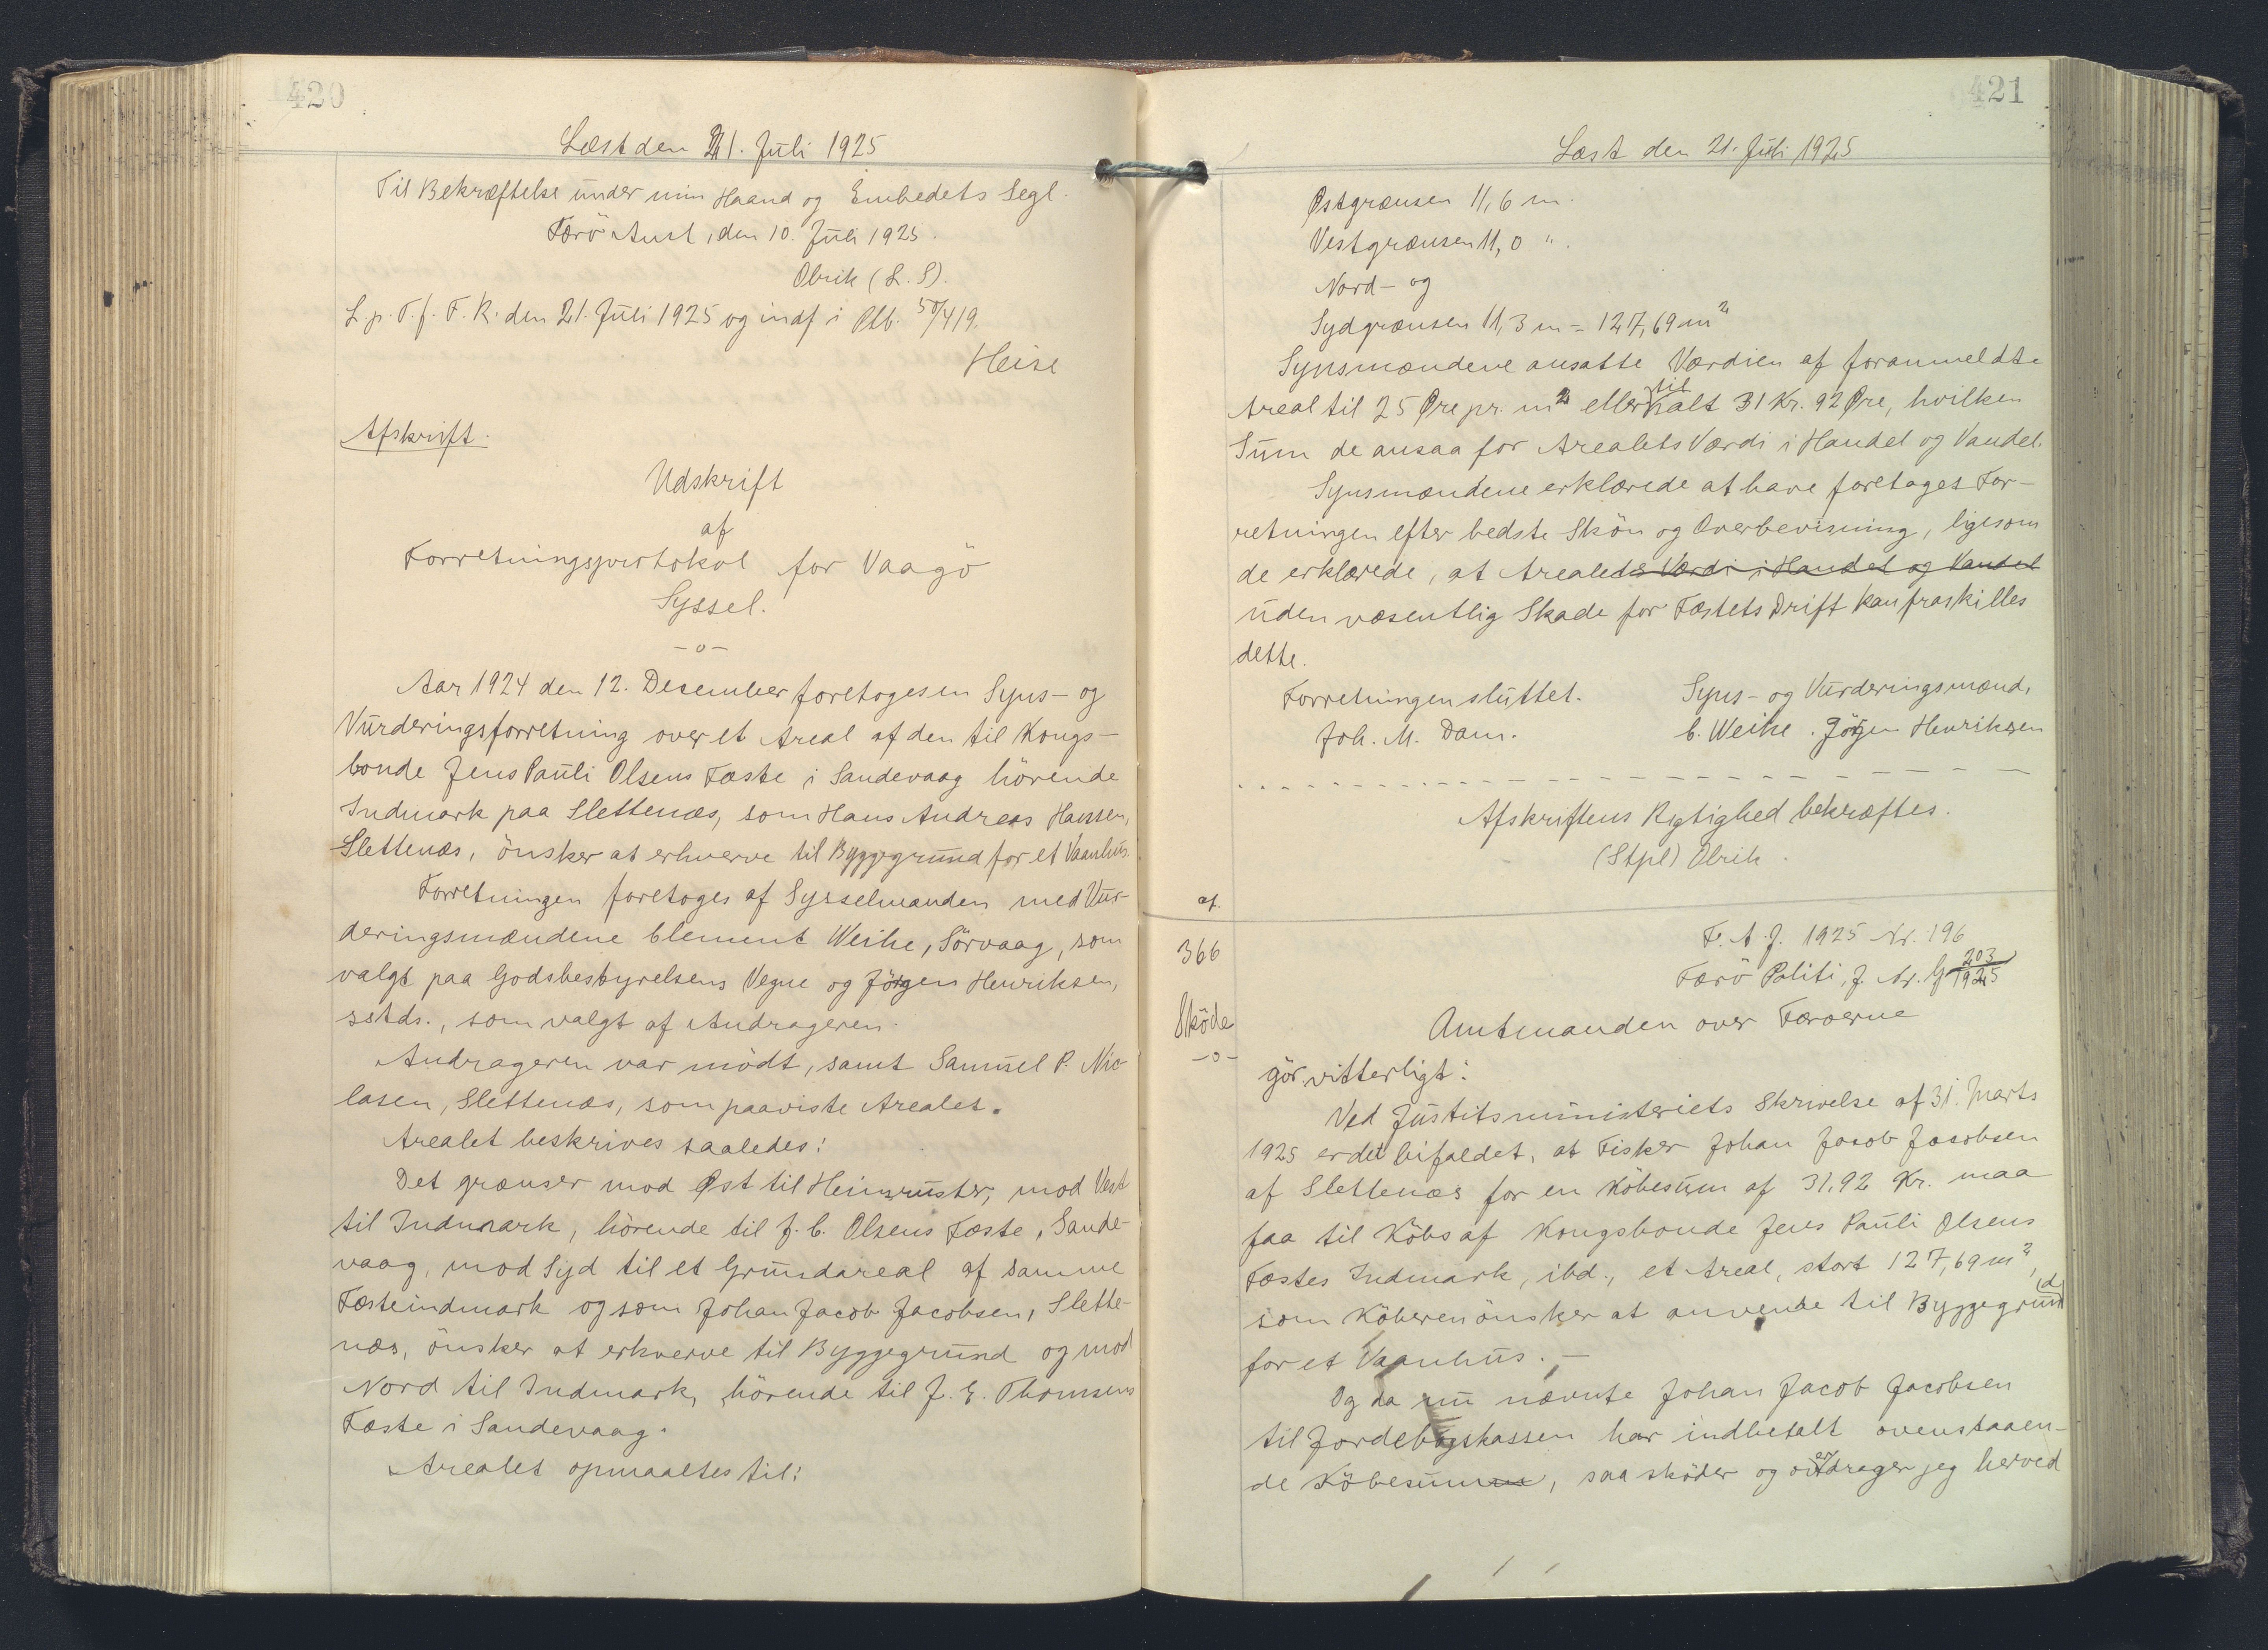 420
Læst den 21. Juli 1925
Til Bekræftelse under min Haand og Embedets Segl.
Færö Amt, den 10. Juli 1925.
Olrik (L. S).
L. p. T. f. F. R. den 21. Juli 1925 og indf i Ptb. 50/419.
Heise
Afskrift.
Udskrift
af
Forretningsprotokol for Vaagö
Syssel.
-o-
Aar 1924 den 12. December foretoges en Syns- og
Vurderingsforretning over et Areal af den til Kongs-
bonde Jens Pauli Olsens Fæste i Sandevaag hörende
Indmark paa Slettenæs, som Hans Andreas Hansen,
Slettenæs, önsker at erhverve til Byggegrund for et Vaanhus.
Forretningen foretoges af Sysselmanden med Vur-
deringsmændene Clement Weihe, Sörvaag, som
valgt paa Godsbestyrelsens Vegne og Jörgen Henriksen,
sstds., som valgt af Andrageren.
Andrageren var mödt, samt Samuel P. Nic-
lasen, Slettenæs, som paaviste Arealet.
Arealet beskrives saaledes:
Det grænser mod Øst til Heimrustir, mod Vest
til Indmark, hörende til J. C. Olsens Fæste, Sande-
vaag, mod Syd til et Grundareal af samme
Fæsteindmark og som Johan Jacob Jacobsen, Slette-
næs, önsker at erhverve til Byggegrund og mod
Nord til Indmark, hörende til J. E. Thomsens
Fæste i Sandevaag.
Arealet opmaaltes til:
421
Læst den 21. Juli 1925
Østgrænsen 11,6 m.
Vestgrænsen 11,0 ".
Nord- og
Sydgrænsen 11,3 m = 127,69 m²
Synsmændene ansatte Værdien af foranmeldte
Areal til 25 Øre pr. m² eller til
halt 31 Kr. 92 Øre, hvilken
Sum de ansaa for Arealets Værdi i Handel og Vandel.
Synsmændene erklærede at have foretaget For-
retningen efter bedste Skön og Overbevisning, ligesom
de erklærede, at Arealets Værdi i Handel og Vandel
uden væsentlig Skade for Fæstets Drift kan fraskilles
dette.
Forretningen sluttet. Syns- og Vurderingsmænd,
Joh. M. Dam. C. Weihe. Jörgen Henriksen
Afskriftens Rigtighed bekræftes.
(Stpl) Olrik.
af.
366
Sköde
-o-
F. A. J. 1925 Nr. 196
Færö Politi, J. Nr. G 203/1925
Amtmanden over Færøerne
gör vitterligt:
Ved Justitsministeriets Skrivelse af 31. Marts
1925 er det bifaldet, at Fisker Johan Jacob Jacobsen
af Slettenæs for en Köbesum af 31,92 Kr. maa
faa til Köbs af Kongsbonde Jens Pauli Olsens
Fæstes Indmark, ibd., et Areal, stort 127,69 m²,
som Köberen önsker at anvende til Byggegrund
for et Vaanhus.-
Og da nu nævnte Johan Jacob Jacobsen
til Jordebogskassen har indbetalt ovenstaaen-
de Köbesum, saa sköder og overdrager jeg herved